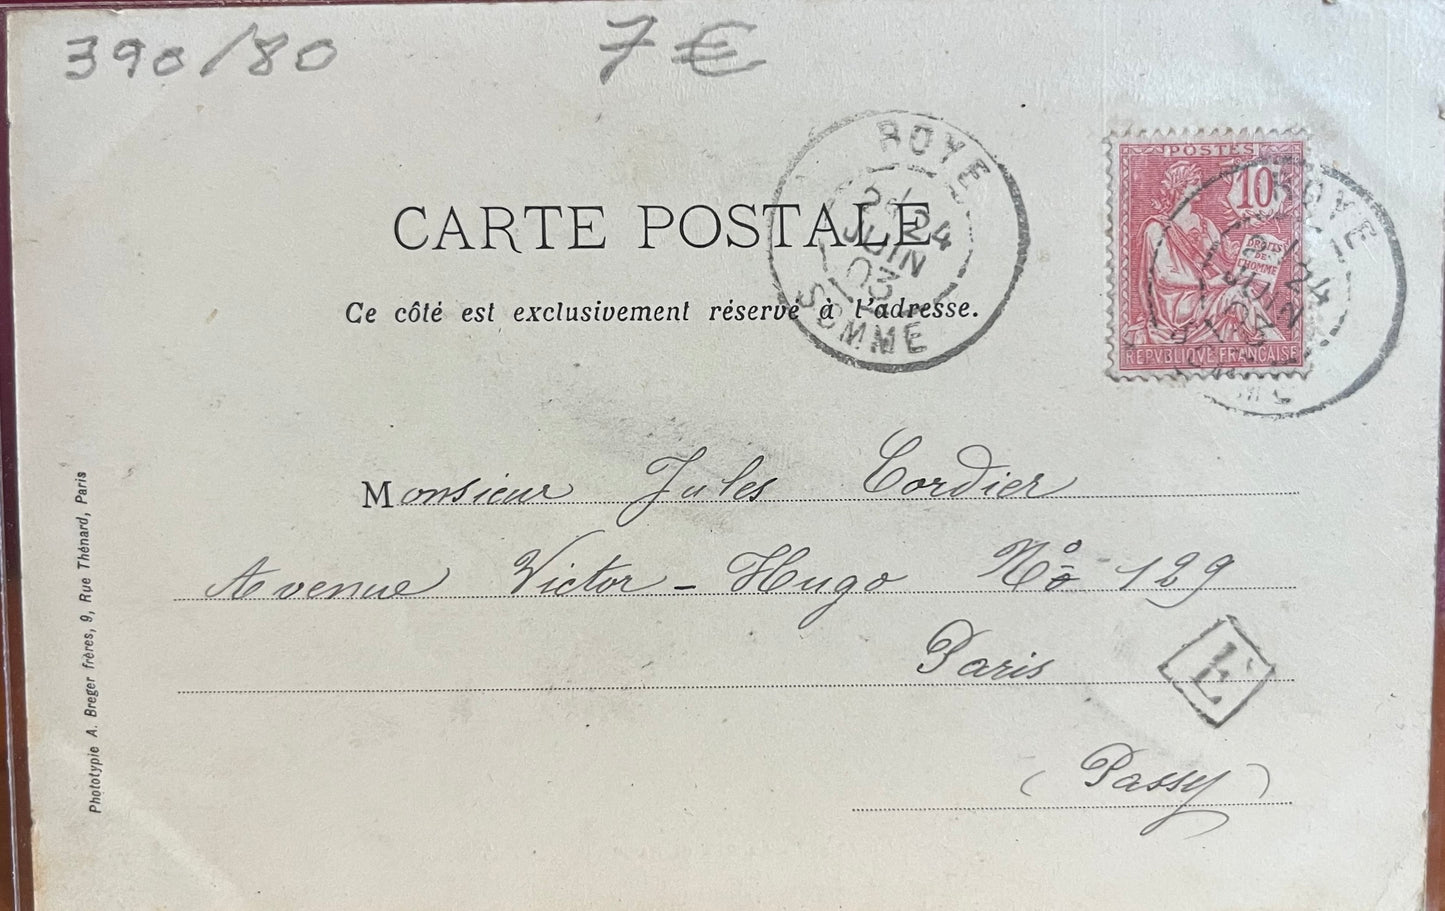 390/80 7 €
CARTE POSTALE
Ce côté est exclusivement réservé à l'adresse.
ROYE
24
JUIN
03
SOMME
POSTES
10
DROITS
DE
L'HOMME
REPVBLIQVE FRANÇAISE
ROYE
24
JUIN
Monsieur Jules Cordier
Avenue Victor-Hugo Nº 129
Paris
È
(Passy)
Phototypie A. Breger frères, 9, Rue Thénard, Paris